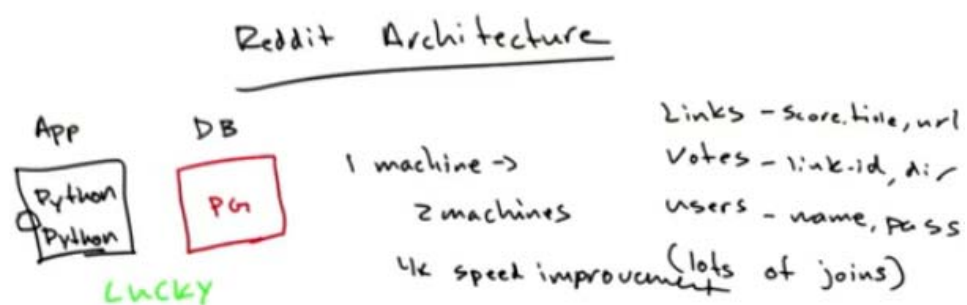 Reddit Architecture
App
DB
Python
Python
PG
Lucky
1 machine →
2 machines
4x speed improvement
Links - score, title, url
Votes - link-id, dir
users - name, pass
(lots of joins)